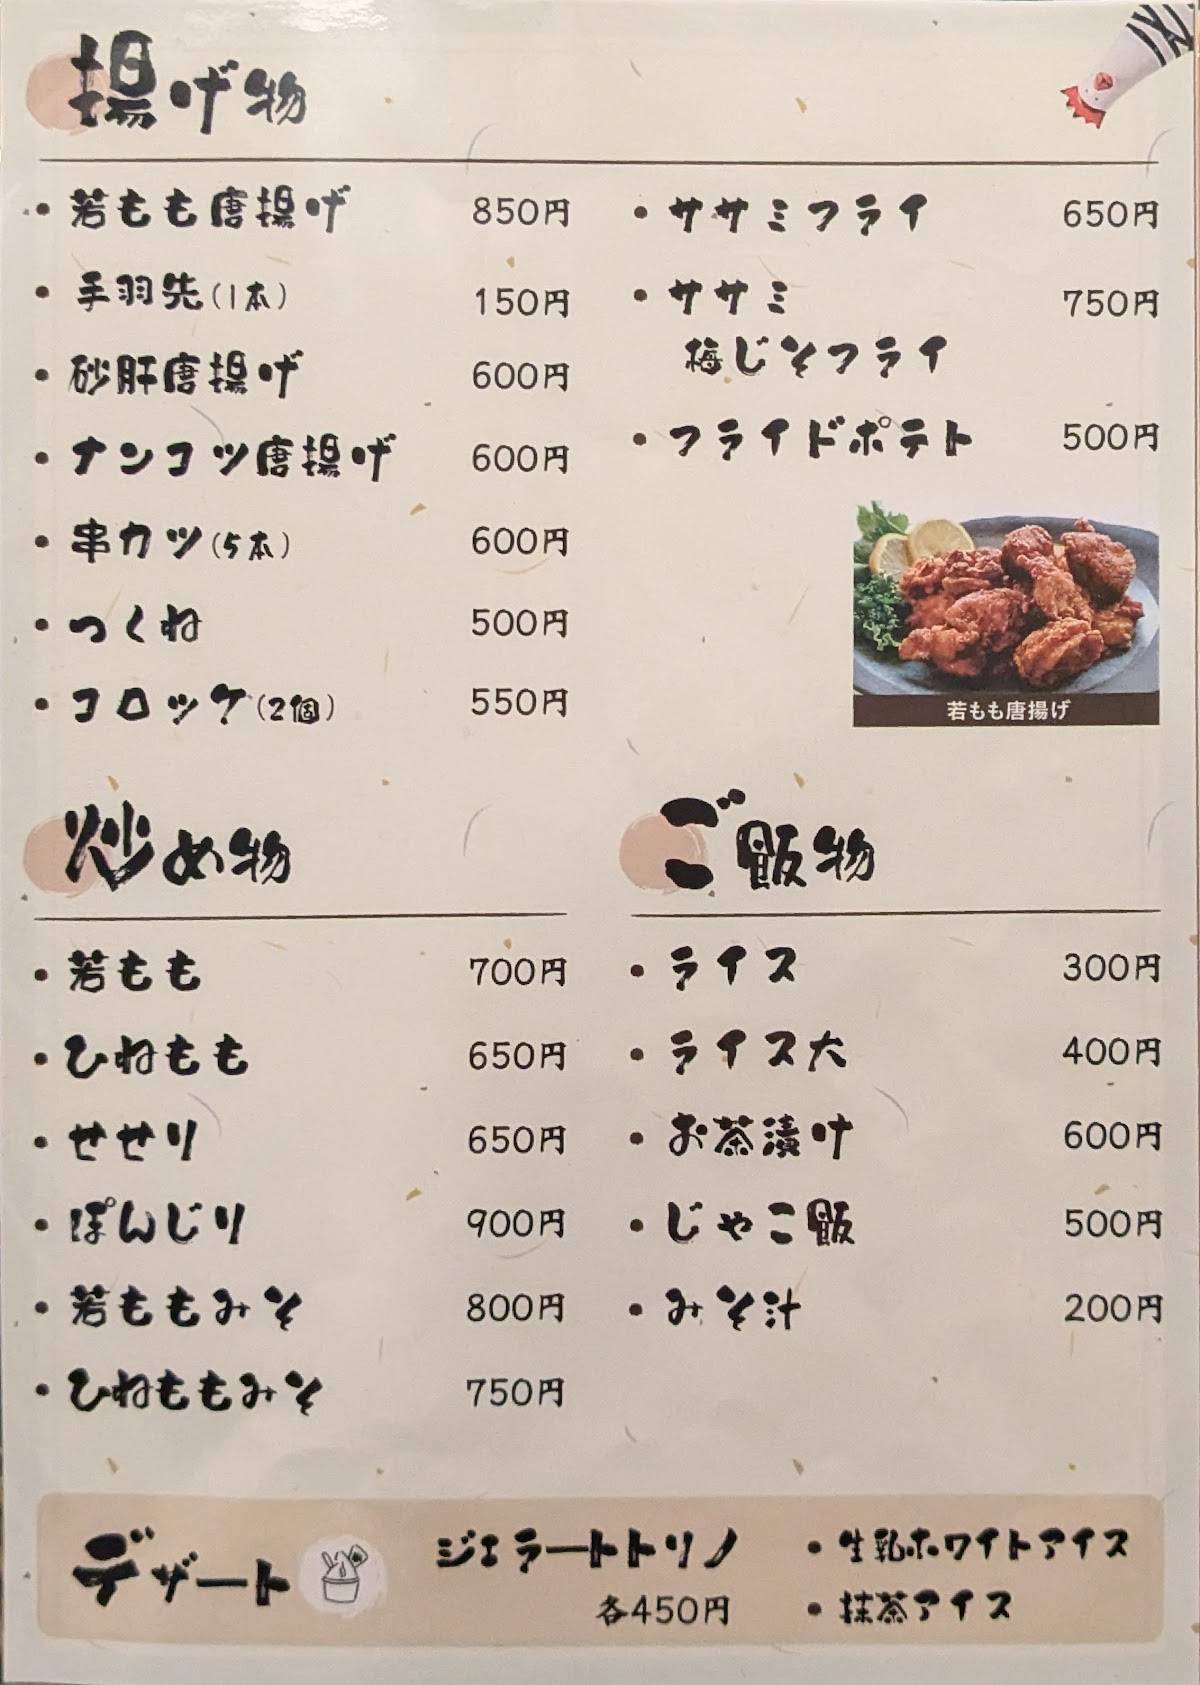 揚げ物
・若もも唐揚げ 850円
・手羽先(1本) 150円
・砂肝唐揚げ 600円
・ナンコツ唐揚げ 600円
・串カツ(5本) 600円
・つくね 500円
・コロッケ(2個) 550円
・ササミフライ 650円
・ササミ 750円
梅じそフライ
・フライドポテト 500円
若もも唐揚げ
炒め物
・若もも 700円
・ひねもも 650円
・せせり 650円
・ぽんじり 900円
・若ももみそ 800円
・ひねももみそ 750円
ご飯物
・ライス 300円
・ライス大 400円
・お茶漬け 600円
・じゃこ飯 500円
・みそ汁 200円
デザート
ジェラートトリノ
各450円
・生乳ホワイトアイス
・抹茶アイス